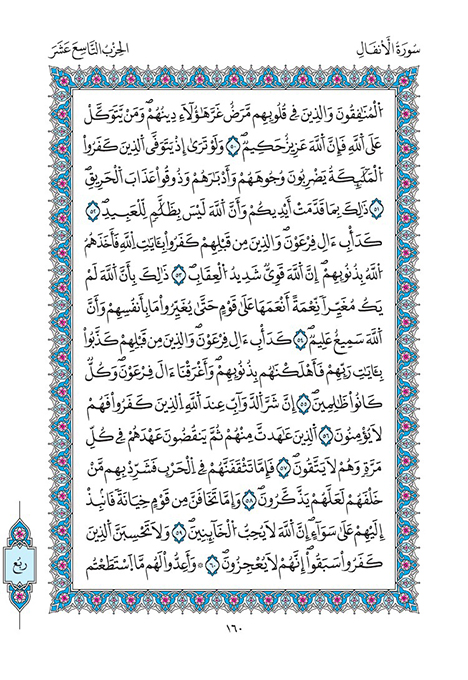 الحِزْبُ التَّاسِعَ عَشَرَ
سُورَةُ الْأَنفَالِ
اَ۬لْمُنَٰفِقُونَ وَالذِينَ فِي قُلُوبِهِم مَّرَضٌ غَرَّ هَٰٓؤُلَآءِ دِينُهُمْۖ وَمَنْ يَّتَوَكَّلْ
عَلَى اَ۬للَّهِ فَإِنَّ اَ۬للَّهَ عَزِيزٌ حَكِيمٞۖ ٥٠ وَلَوْ تَر۪يٰٓ إِذْ يَتَوَفَّي اَ۬لذِينَ كَفَرُواْ
اُ۬لْمَلَٰٓئِكَةُ يَضْرِبُونَ وُجُوهَهُمْ وَأَدْبَٰرَهُمْ وَذُوقُواْ عَذَابَ اَ۬لْحَرِيقِۖ
٥١ ذَٰلِكَ بِمَا قَدَّمَتَ اَيْدِيكُمْ وَأَنَّ اَ۬للَّهَ لَيْسَ بِظَلَّٰمٖ لِّلْعَبِيدِۖ ٥٢
كَدَأْبِ ءَالِ فِرْعَوْنَۖ وَالذِينَ مِن قَبْلِهِمْ كَفَرُواْ بِـَٔايَٰتِ اِ۬للَّهِ فَأَخَذَهُمُ
اُ۬للَّهُ بِذُنُوبِهِمُۥٓۖ إِنَّ اَ۬للَّهَ قَوِيّٞ شَدِيدُ اُ۬لْعِقَابِۖ ٥٣ ذَٰلِكَ بِأَنَّ اَ۬للَّهَ لَمْ
يَكُ مُغَيِّراٗ نِّعْمَةً اَنْعَمَهَا عَلَىٰ قَوْمٍ حَتَّىٰ يُغَيِّرُواْ مَا بِأَنفُسِهِمْ وَأَنَّ
اَ۬للَّهَ سَمِيعٌ عَلِيمٞۖ ٥٤ كَدَأْبِ ءَالِ فِرْعَوْنَۖ وَالذِينَ مِن قَبْلِهِمْ كَذَّبُواْ
بِـَٔايَٰتِ رَبِّهِمْ فَأَهْلَكْنَٰهُم بِذُنُوبِهِمْۖ وَأَغْرَقْنَآ ءَالَ فِرْعَوْنَۖ وَكُلّٞ
كَانُواْ ظَٰلِمِينَۖ ٥٥ إِنَّ شَرَّ اَ۬لدَّوَآبِّ عِندَ اَ۬للَّهِ اِ۬لذِينَ كَفَرُواْ فَهُمْ
لَا يُؤْمِنُونَۖ ٥٦ اَ۬لذِينَ عَٰهَدتَّ مِنْهُمْ ثُمَّ يَنقُضُونَ عَهْدَهُمْ فِي كُلِّ
مَرَّةٖ وَهُمْ لَا يَتَّقُونَۖ ٥٧ فَإِمَّا تَثْقَفَنَّهُمْ فِي اِ۬لْحَرْبِ فَشَرِّدْ بِهِم مَّنْ
خَلْفَهُمْ لَعَلَّهُمْ يَذَّكَّرُونَۖ ٥٨ وَإِمَّا تَخَافَنَّ مِن قَوْمٍ خِيَانَةٗ فَانۢبِذِ
اِلَيْهِمْ عَلَىٰ سَوَآءٍۖ اِنَّ اَ۬للَّهَ لَا يُحِبُّ اُ۬لْخَآئِنِينَۖ ٥٩ وَلَا تَحْسِبَنَّ اَ۬لذِينَ
كَفَرُواْ سَبَقُوٓاْۖ إِنَّهُمْ لَا يُعْجِزُونَۖ ٦٠ ۞ وَأَعِدُّواْ لَهُم مَّا اَ۪سْتَطَعْتُم
رُبُع
١٦٠